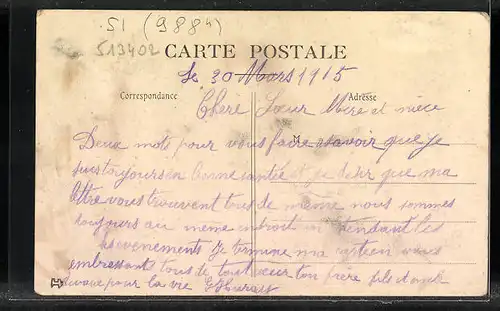 51 (988
513402
CARTE POSTALE
le 30 Mars 1915
Correspondance Adresse
Chere Sœur Mère et niece
Deux mots pour vous faire savoir que je
suis toujours en bonne santée et je desir que ma
lettre vous trouvent tous de même nous sommes
toujours au meme endroit en tendant les
evenements Je termine ma en vous
embrassant tous de tout cœur ton frère fils
pour la vie